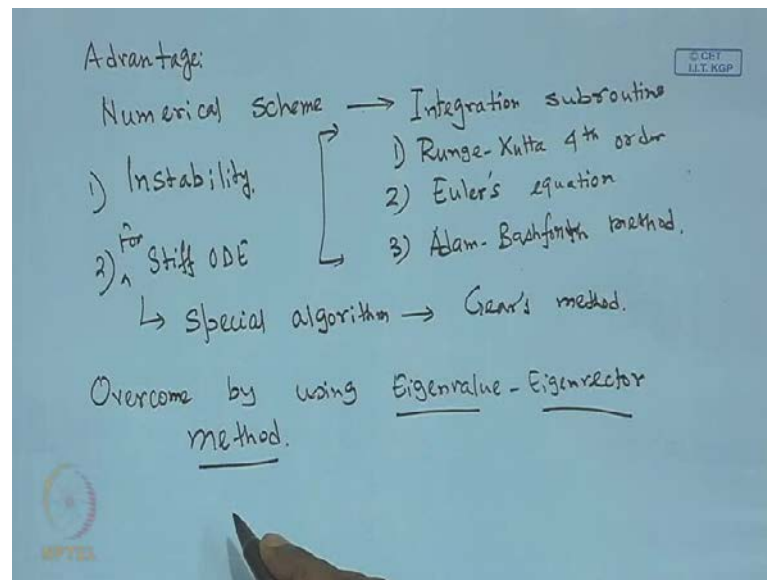 Advantage:
© CET
I.I.T. KGP
Numerical scheme → Integration subroutine
1) Instability.
1) Runge-Kutta 4th order
2) Euler's equation
2) For Stiff ODE
3) Adam-Bashforth method.
↳ Special algorithm → Gear's method.
Overcome by using Eigenvalue-Eigenvector
method.
NPTEL